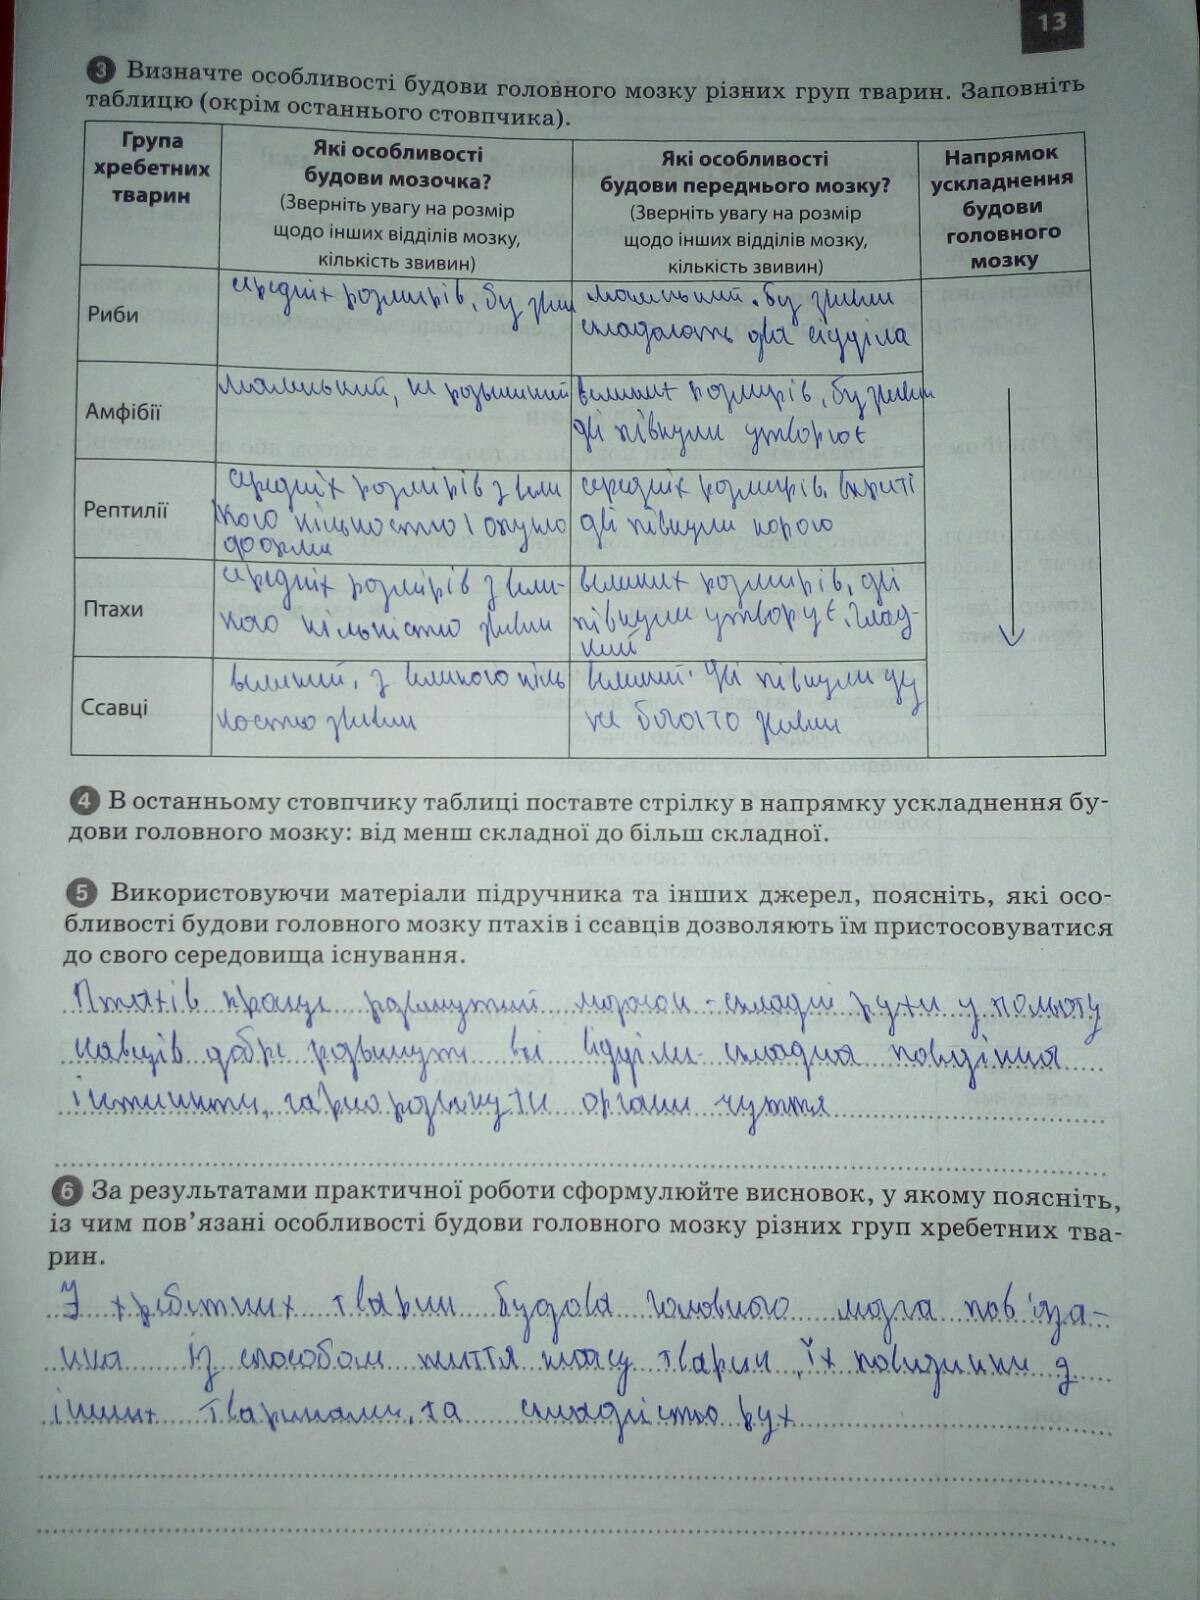 13
3 Визначте особливості будови головного мозку різних груп тварин. Заповніть
таблицю (окрім останнього стовпчика).
Група
хребетних
тварин
Які особливості
будови мозочка?
(Зверніть увагу на розмір
щодо інших відділів мозку,
кількість звивин)
Які особливості
будови переднього мозку?
(Зверніть увагу на розмір
щодо інших відділів мозку,
кількість звивин)
Напрямок
ускладнення
будови
головного
мозку
Риби
середніх розмирів, без звив
маленький, без звивин
складають два відділа
Амфібії
маленький, не розвинений
великих розмирів, без звивин
дві півкули утворює
Рептилії
середніх розмірів з вели
кою кількостю
середніх розмирів, вкриті
дві півкули корою
Птахи
середніх розмірів з вели-
кою кількістю звивин
великих розмирів, дві
півкули утворує, глад-
кий
Ссавці
великий, з великою кіль
костю звивин
великий. Дві півкули ду
же багато звивин
4 В останньому стовпчику таблиці поставте стрілку в напрямку ускладнення бу-
дови головного мозку: від менш складної до більш складної.
5 Використовуючи матеріали підручника та інших джерел, поясніть, які осо-
бливості будови головного мозку птахів і ссавців дозволяють їм пристосовуватися
до свого середовища існування.
Птахів краще развинутий мозочок - складні рухи у польоту
ссавців добре розвинуті всі відділи - складна поведінка
інстинкти, гарно розвинути органи чуття
6 За результатами практичної роботи сформулюйте висновок, у якому поясніть,
із чим пов’язані особливості будови головного мозку різних груп хребетних тва-
рин.
У хребетних тварин будова головного мозга пов'яза-
нна із способом життя класу тварин, їх повединки з
інших тваринами, та складністю рух